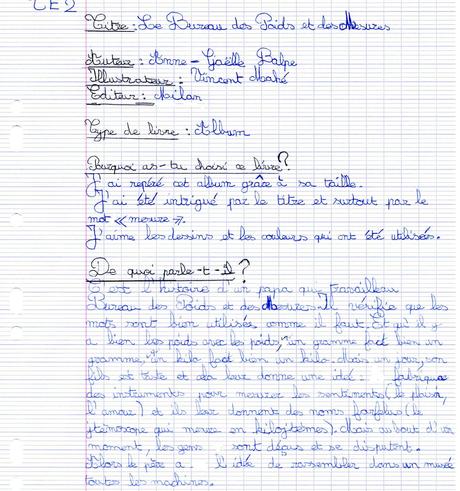 CE2
Titre : Le Bureau des Poids et des Mesures
Auteur : Anne-Gaëlle Balpe
Illustrateur : Vincent Mahé
Editeur : Milan
Type de livre : Album
Pourquoi as-tu choisi ce livre ?
J'ai repéré cet album grâce à sa taille.
J'ai été intrigué par le titre et surtout par le
mot « mesure ».
J'aime les dessins et les couleurs qui ont été utilisés.
De quoi parle-t-il ?
C'est l'histoire d'un papa qui travaille au
Bureau des Poids et des Mesures. Il vérifie que les
mots sont bien utilisés comme il faut. Et qu'il y
a bien les poids avec les poids, "un gramme fait bien un
gramme, "un kilo fait bien un kilo. Mais un jour, son
fils est triste et cela leur donne une idée : fabriquer
des instruments pour mesurer les sentiments (le plaisir,
l'amour) et ils leur donnent des noms farfelus (le
jtémoscope qui mesure en kilojtèmes). Mais au bout d'un
moment, les gens sont déçus et se disputent.
Alors le père a l'idée de rassembler dans un musée
toutes les machines.